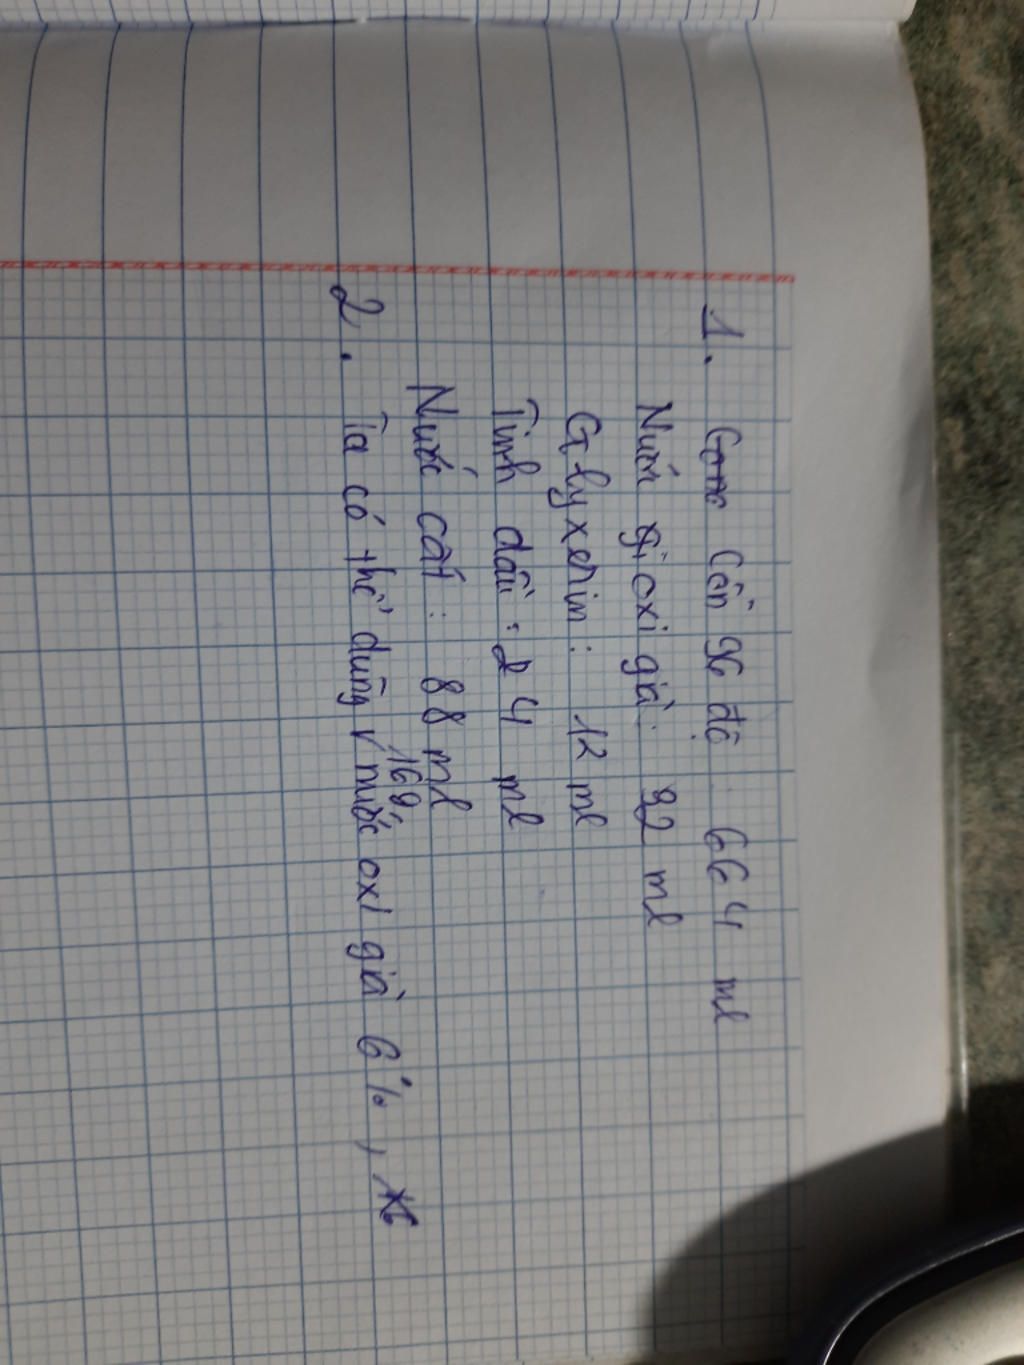 1. Cồn 96 độ 664 ml
Nước oxi già: 32 ml
Glyxerin: 12 ml
Tinh dầu: 4 ml
Nước cất: 88 ml
2. Ta có thể dùng 16g nước oxi già 6%,